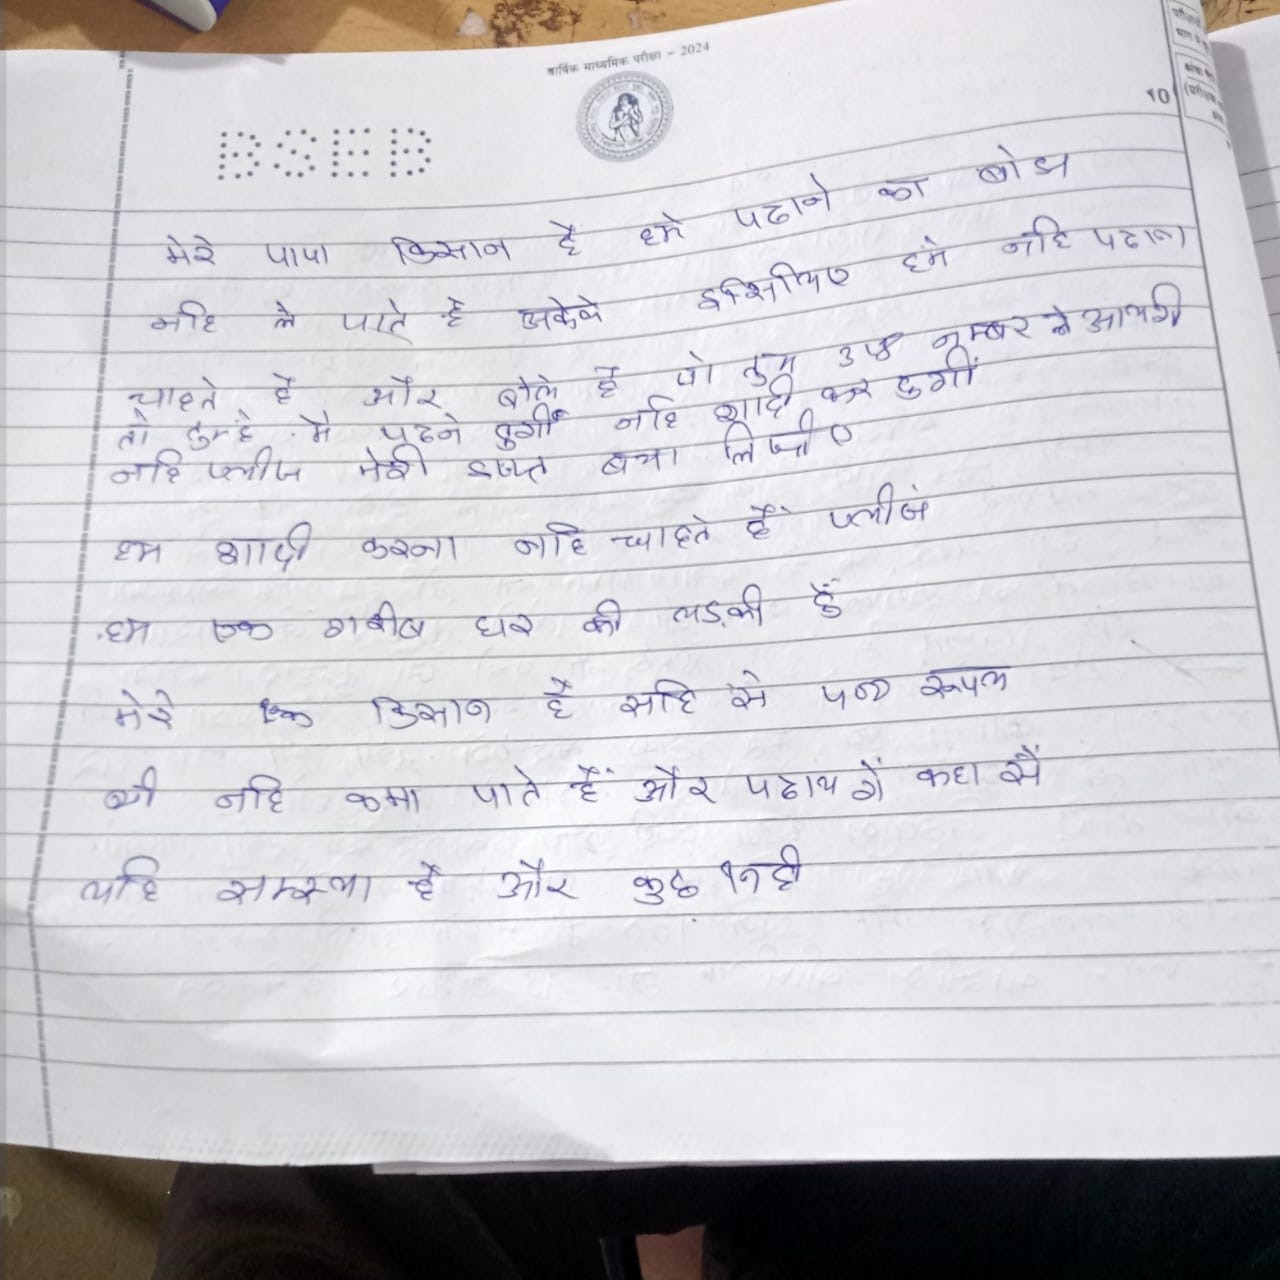 वार्षिक माध्यमिक परीक्षा - 2024
10
BSEB
मेरे पापा किसान है हमे पढाने का बोझ
नहि ले पाते है इस्सिलिए हमे नहि पढाना
चाहते है और बोले है तुम नम्बर ले आयगी
तो तुम्हे मै पढने दुगीं नहि शादी कर दुगीं
नहि प्लीज मेरी इज्त बचा लिजीए
हम शादी करना नहि चाहते हैं प्लीजं
हम एक गरीब घर की लड़की हुँ
मेरे एक किसान है सहि से पन्द्र रूपल
भी नहि कमा पाते हैं और पढाय गें कहा सैं
यहि समस्या है और कुछ नही